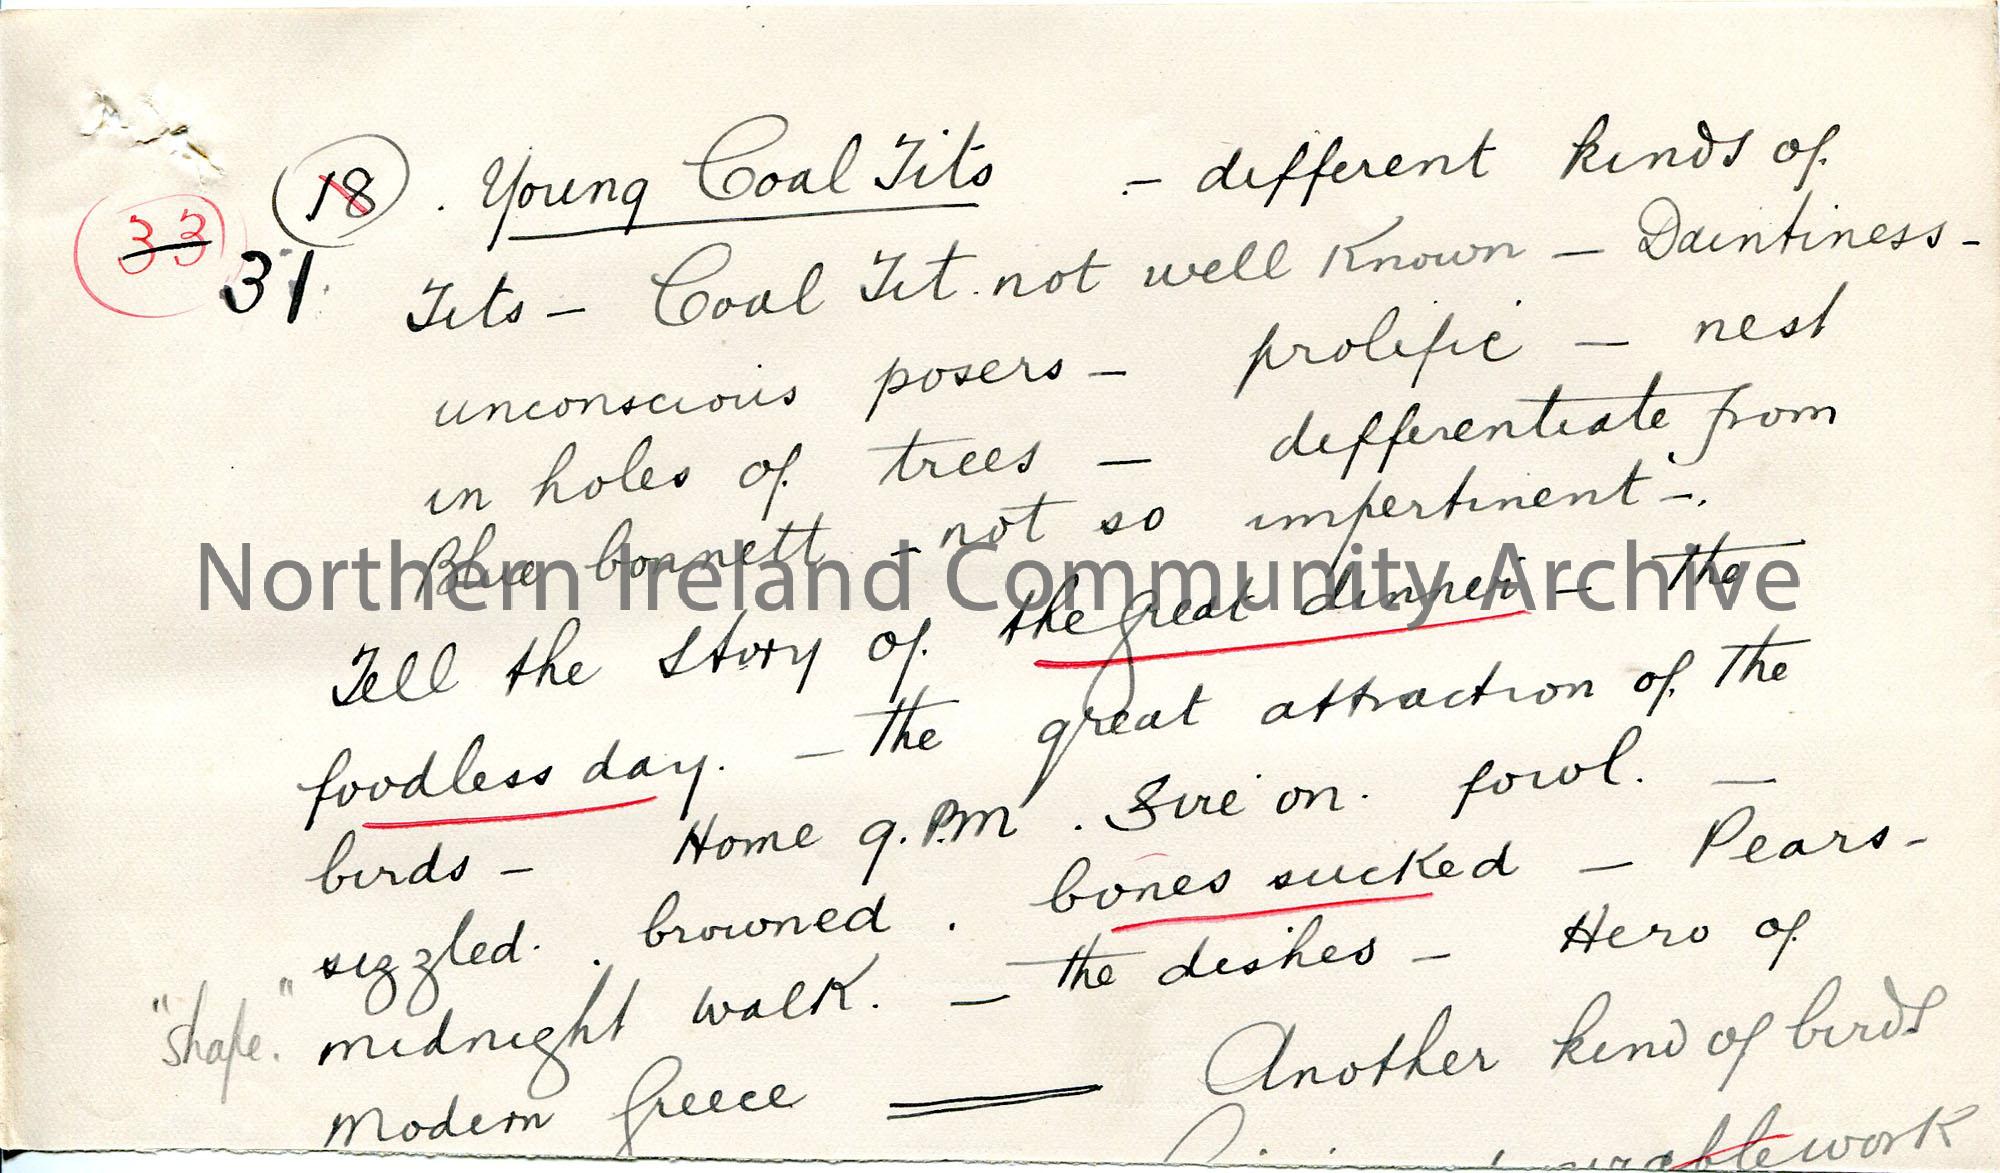 18 . Young Coal Tits - different kinds of
33
31 Tits - Coal Tit. not well known - Daintiness -
unconscious posers - prolific - nest
in holes of trees - differentiate from
Blue bonnett - not so impertinent -.
Northern Ireland Community Archive
Tell the story of the great dinner - the
foodless day. - the great attraction of the
birds - Home 9.P.M. fowl. -
sizzled. . browned . bones sucked - Pears -
"shape." midnight walk. - the dishes - Hero of
Modern Greece Another kind of birds
work